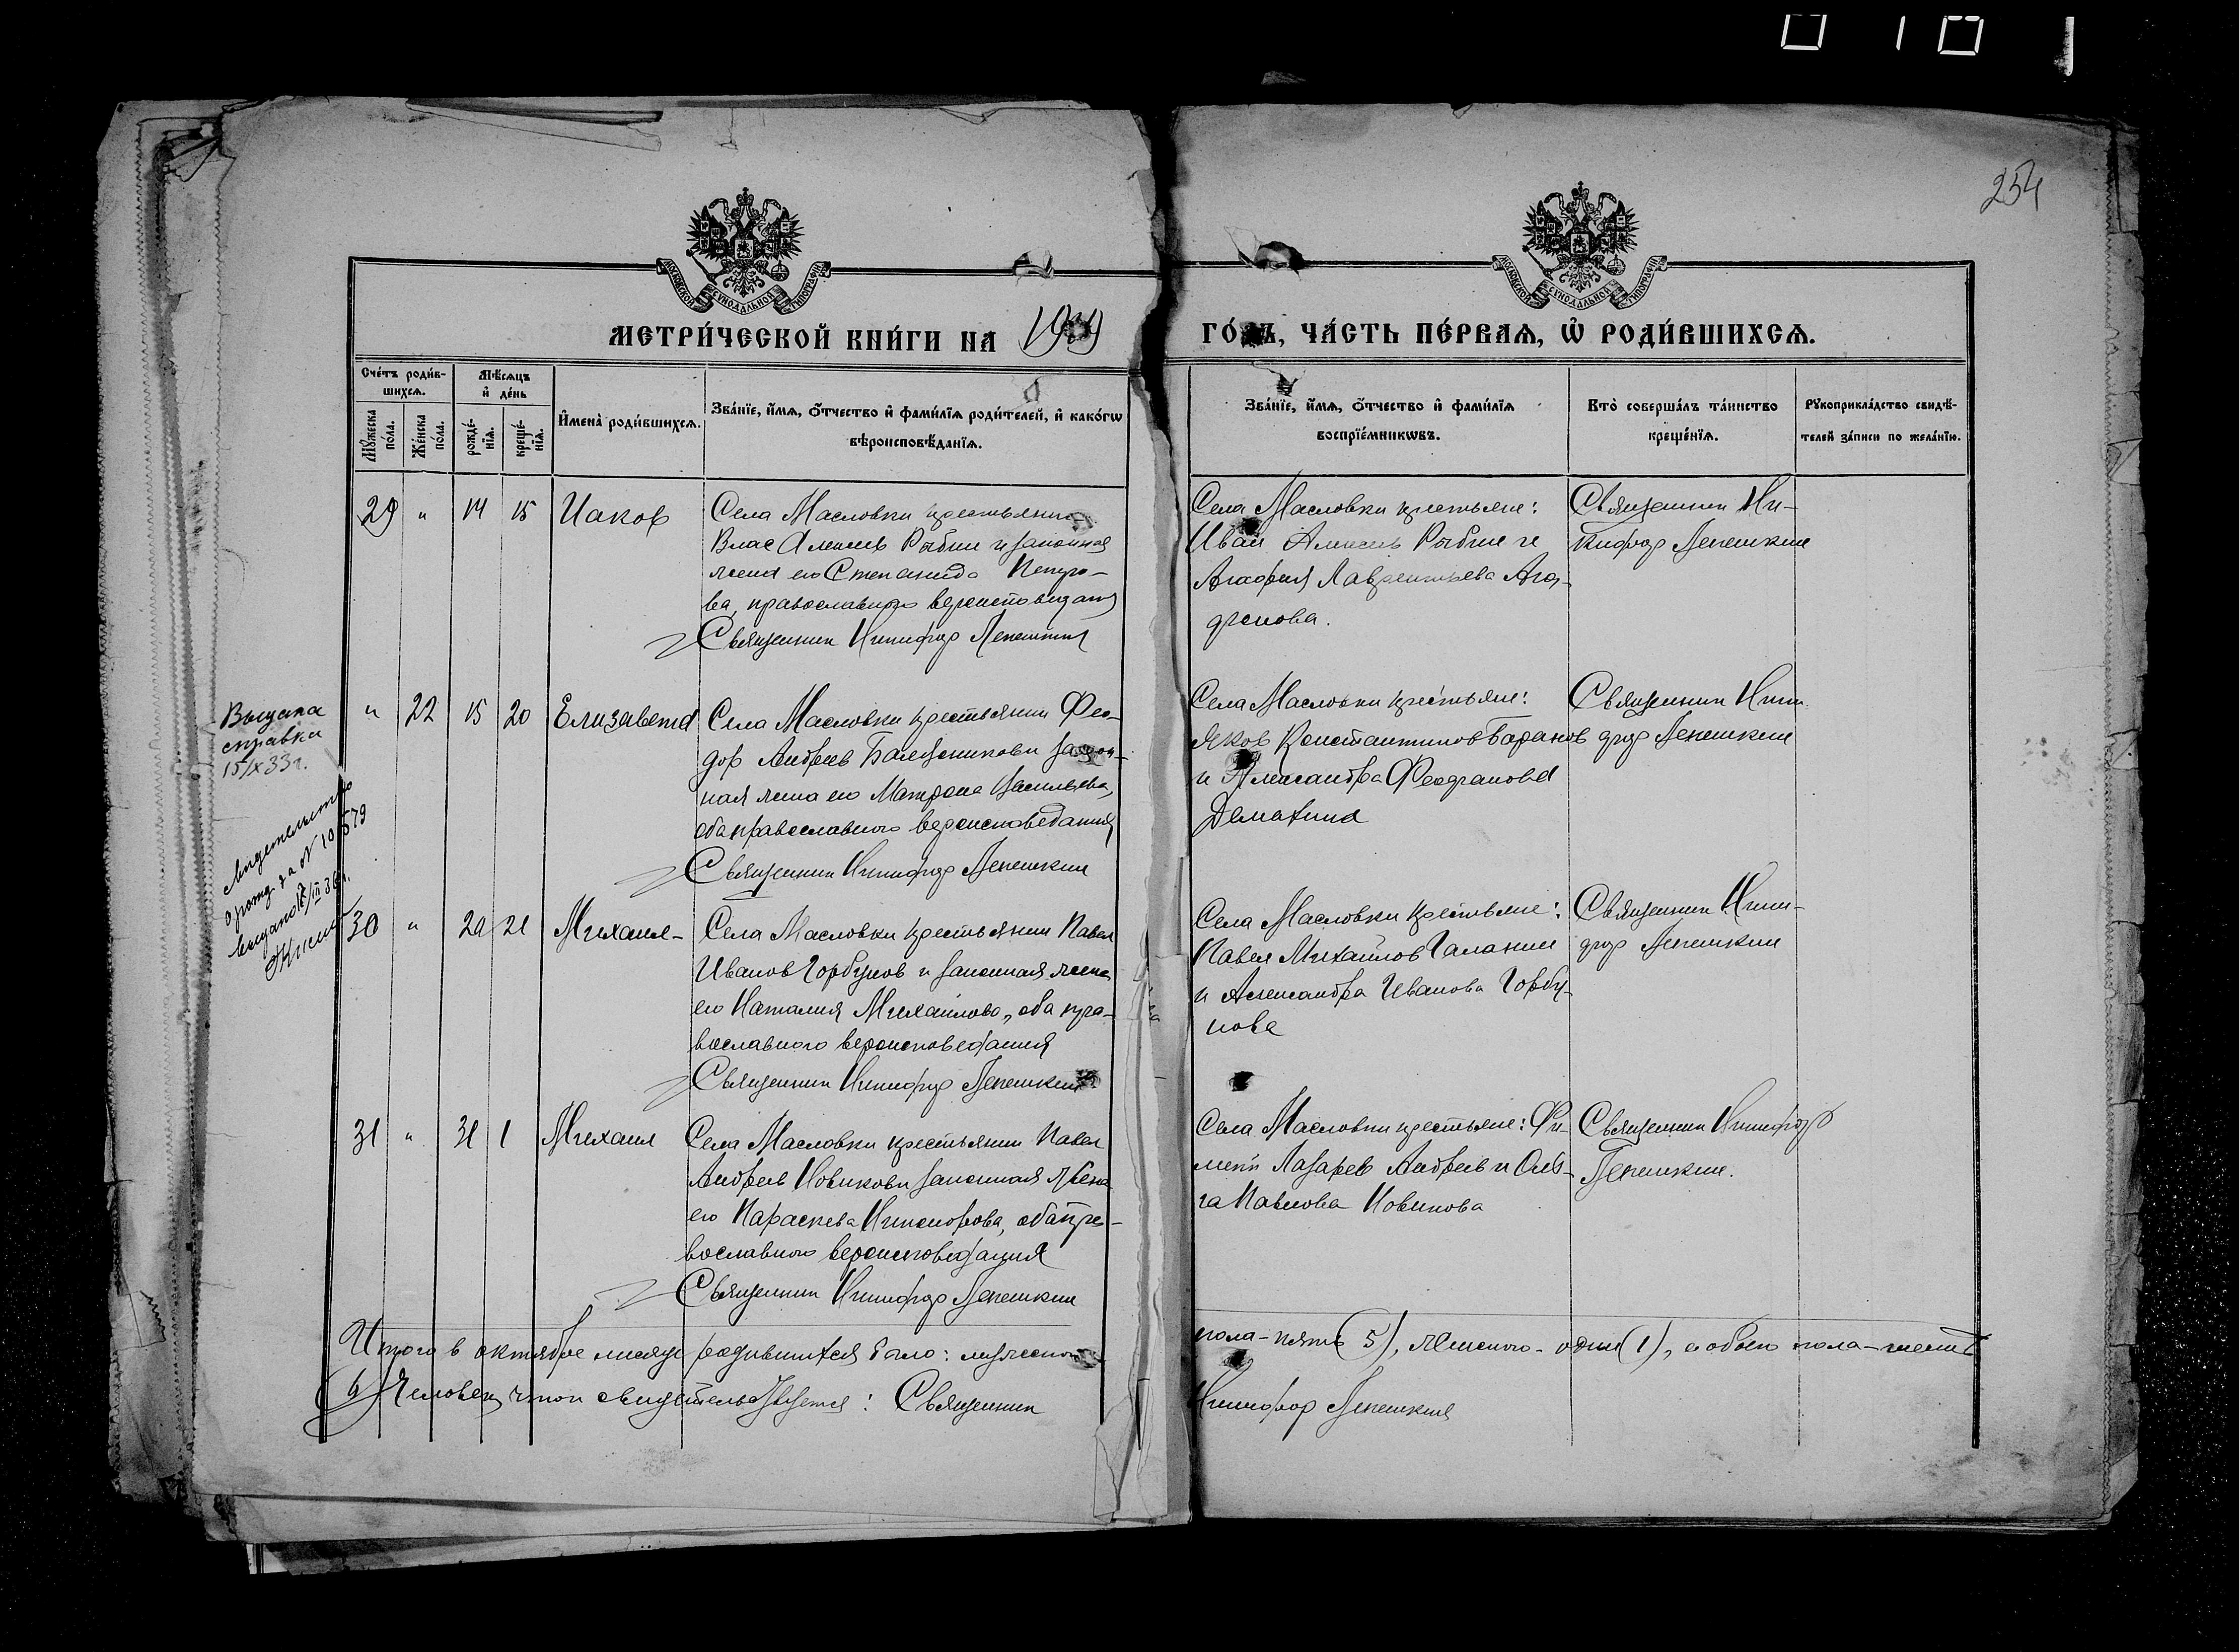 254
МОСКОВСКОЙ СѴНОДАЛЬНОЙ ТИПОГРАФІИ
МОСКОВСКОЙ СѴНОДАЛЬНОЙ ТИПОГРАФІИ
МЕТРИ́ЧЕСКОЙ КНИ́ГИ НА
ГО́ДЪ, ЧА́СТЬ ПЕ́РВАѦ, Ѡ҆ РОДИ́ВШИХСѦ.
Сче́тъ роди́в-
шихсѧ.
Мѣ́сѧцъ
и҆ де́нь
Мꙋ́жеска
по́ла.
Же́нска
по́ла.
рожде́-
нїѧ.
креще́-
нїѧ.
И҆мена̀ роди́вшихсѧ.
Зва́нїе, и҆́мѧ, ѻ҆́тчество и҆ фами́лїѧ роди́телей, и҆ како́гѡ
вѣроисповѣ́данїѧ.
Зва́нїе, и҆́мѧ, ѻ҆́тчество и҆ фами́лїѧ
воспрїе́мникѡвъ.
Кто̀ соверша́лъ та́инство
креще́нїѧ.
Рꙋкоприкла́дство свидѣ́-
телей за́писи по жела́нїю.
29 " 14 15 Иаков
Села Масловки крестьянин
Влас Алексеев Рыбин и законная
жена его Степанида Петро-
ва, православного вероисповедания
Священник Никифор Лепешкин
Села Масловки крестьяне:
Иван Алексеев Рыбин и
Агафия Лаврентьева Ага-
фонова.
Священник Ни-
кифор Лепешкин
Выписка
справка
15/X 33 г.
" 22 15 20 Елизавета
Села Масловки крестьянин Фео-
дор Андреев и закон-
ная жена его Матрона Васильева,
оба православного вероисповедания
Священник Никифор Лепешкин
Села Масловки крестьяне:
Яков Константинов Баранов
и Александра
Священник Ники-
фор Лепешкин
Свидетельство
о рожд. за № 10
выдано
30 " 20 21 Михаил
Села Масловки крестьянин Павел
Иванов Горбунов и законная жена
его Наталия Михайлова, оба пра-
вославного вероисповедания
Священник Никифор Лепешкин
Села Масловки крестьяне:
Павел Михайлов Галакин
и Александра Иванова Горбу-
нова
Священник Ники-
фор Лепешкин
31 " 31 1 Михаил
Села Масловки крестьянин Павел
Андреев Новиков и законная жена
его Параскева Никанорова, оба пра-
вославного вероисповедания
Священник Никифор Лепешкин
Села Масловки крестьяне:
Лазарев Андреев и Оль-
га Павлова Новикова
Священник Никифор
Лепешкин.
Итого в октябре месяце родившихся было: мужеского
пола - пять (5), женского - один (1), а обоего пола - шесть
(6) человек, в чем и свидетельствуется: Священник
Никифор Лепешкин